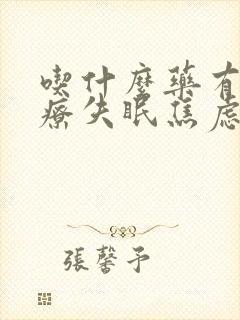 喫什麼藥有
療失眠焦慮
張馨予